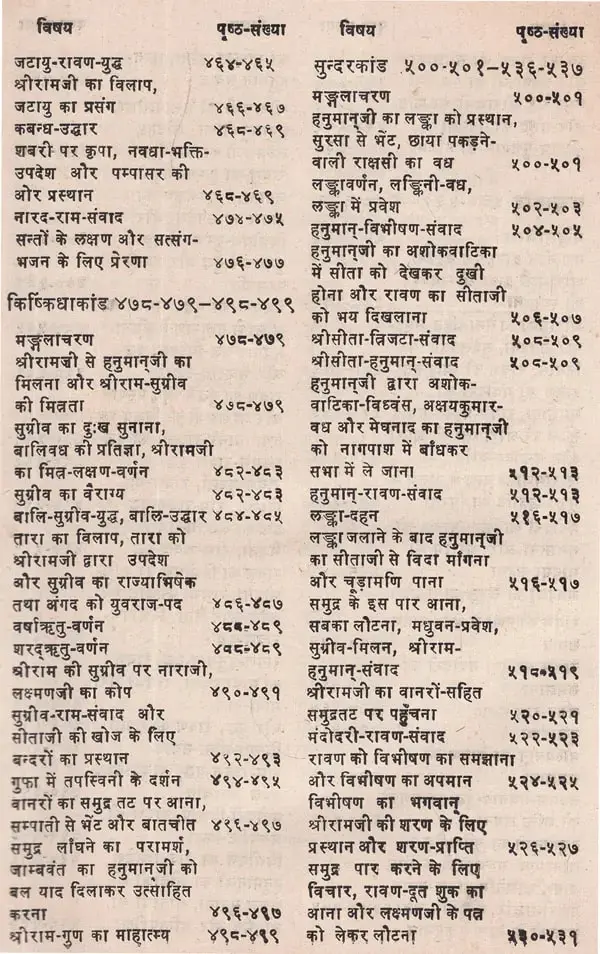 विषय पृष्ठ-संख्या
जटायु-रावण-युद्ध ४६४-४६५
श्रीरामजी का विलाप,
जटायु का प्रसंग ४६६-४६७
कबन्ध-उद्धार ४६८-४६९
शबरी पर कृपा, नवधा-भक्ति-
उपदेश और पम्पासर की
ओर प्रस्थान ४६८-४६९
नारद-राम-संवाद ४७४-४७५
सन्तों के लक्षण और सत्संग-
भजन के लिए प्रेरणा ४७६-४७७
किष्किंधाकांड ४७८-४७९—४९८-४९९
मङ्गलाचरण ४७८-४७९
श्रीरामजी से हनुमान्‌जी का
मिलना और श्रीराम-सुग्रीव
की मित्रता ४७८-४७९
सुग्रीव का दुःख सुनाना,
बालिवध की प्रतिज्ञा, श्रीरामजी
का मित्र-लक्षण-वर्णन ४८२-४८३
सुग्रीव का वैराग्य ४८२-४८३
बालि-सुग्रीव-युद्ध, बालि-उद्धार ४८४-४८५
तारा का विलाप, तारा को
श्रीरामजी द्वारा उपदेश
और सुग्रीव का राज्याभिषेक
तथा अंगद को युवराज-पद ४८६-४८७
वर्षाऋतु-वर्णन ४८८-४८९
शरद्ऋतु-वर्णन ४८८-४८९
श्रीराम की सुग्रीव पर नाराजी,
लक्ष्मणजी का कोप ४९०-४९१
सुग्रीव-राम-संवाद और
सीताजी की खोज के लिए
बन्दरों का प्रस्थान ४९२-४९३
गुफा में तपस्विनी के दर्शन ४९४-४९५
वानरों का समुद्र तट पर आना,
सम्पाती से भेंट और बातचीत ४९६-४९७
समुद्र लाँघने का परामर्श,
जाम्बवंत का हनुमान्‌जी को
बल याद दिलाकर उत्साहित
करना ४९६-४९७
श्रीराम-गुण का माहात्म्य ४९८-४९९
विषय पृष्ठ-संख्या
सुन्दरकांड ५००-५०१—५३६-५३७
मङ्गलाचरण ५००-५०१
हनुमान्‌जी का लङ्का को प्रस्थान,
सुरसा से भेंट, छाया पकड़ने-
वाली राक्षसी का वध ५००-५०१
लङ्कावर्णन, लङ्किनी-वध,
लङ्का में प्रवेश ५०२-५०३
हनुमान्-विभीषण-संवाद ५०४-५०५
हनुमान्‌जी का अशोकवाटिका
में सीता को देखकर दुखी
होना और रावण का सीताजी
को भय दिखलाना ५०६-५०७
श्रीसीता-त्रिजटा-संवाद ५०८-५०९
श्रीसीता-हनुमान्-संवाद ५०८-५०९
हनुमान्‌जी द्वारा अशोक-
वाटिका-विध्वंस, अक्षयकुमार-
वध और मेघनाद का हनुमान्‌जी
को नागपाश में बाँधकर
सभा में ले जाना ५१२-५१३
हनुमान्-रावण-संवाद ५१२-५१३
लङ्का-दहन ५१६-५१७
लङ्का जलाने के बाद हनुमान्‌जी
का सीताजी से विदा माँगना
और चूड़ामणि पाना ५१६-५१७
समुद्र के इस पार आना,
सबका लौटना, मधुवन-प्रवेश,
सुग्रीव-मिलन, श्रीराम-
हनुमान्-संवाद ५१८-५१९
श्रीरामजी का वानरों-सहित
समुद्रतट पर पहुँचना ५२०-५२१
मंदोदरी-रावण-संवाद ५२२-५२३
रावण को विभीषण का समझाना
और विभीषण का अपमान ५२४-५२५
विभीषण का भगवान्
श्रीरामजी की शरण के लिए
प्रस्थान और शरण-प्राप्ति ५२६-५२७
समुद्र पार करने के लिए
विचार, रावण-दूत शुक का
आना और लक्ष्मणजी के पत्र
को लेकर लौटना ५३०-५३१